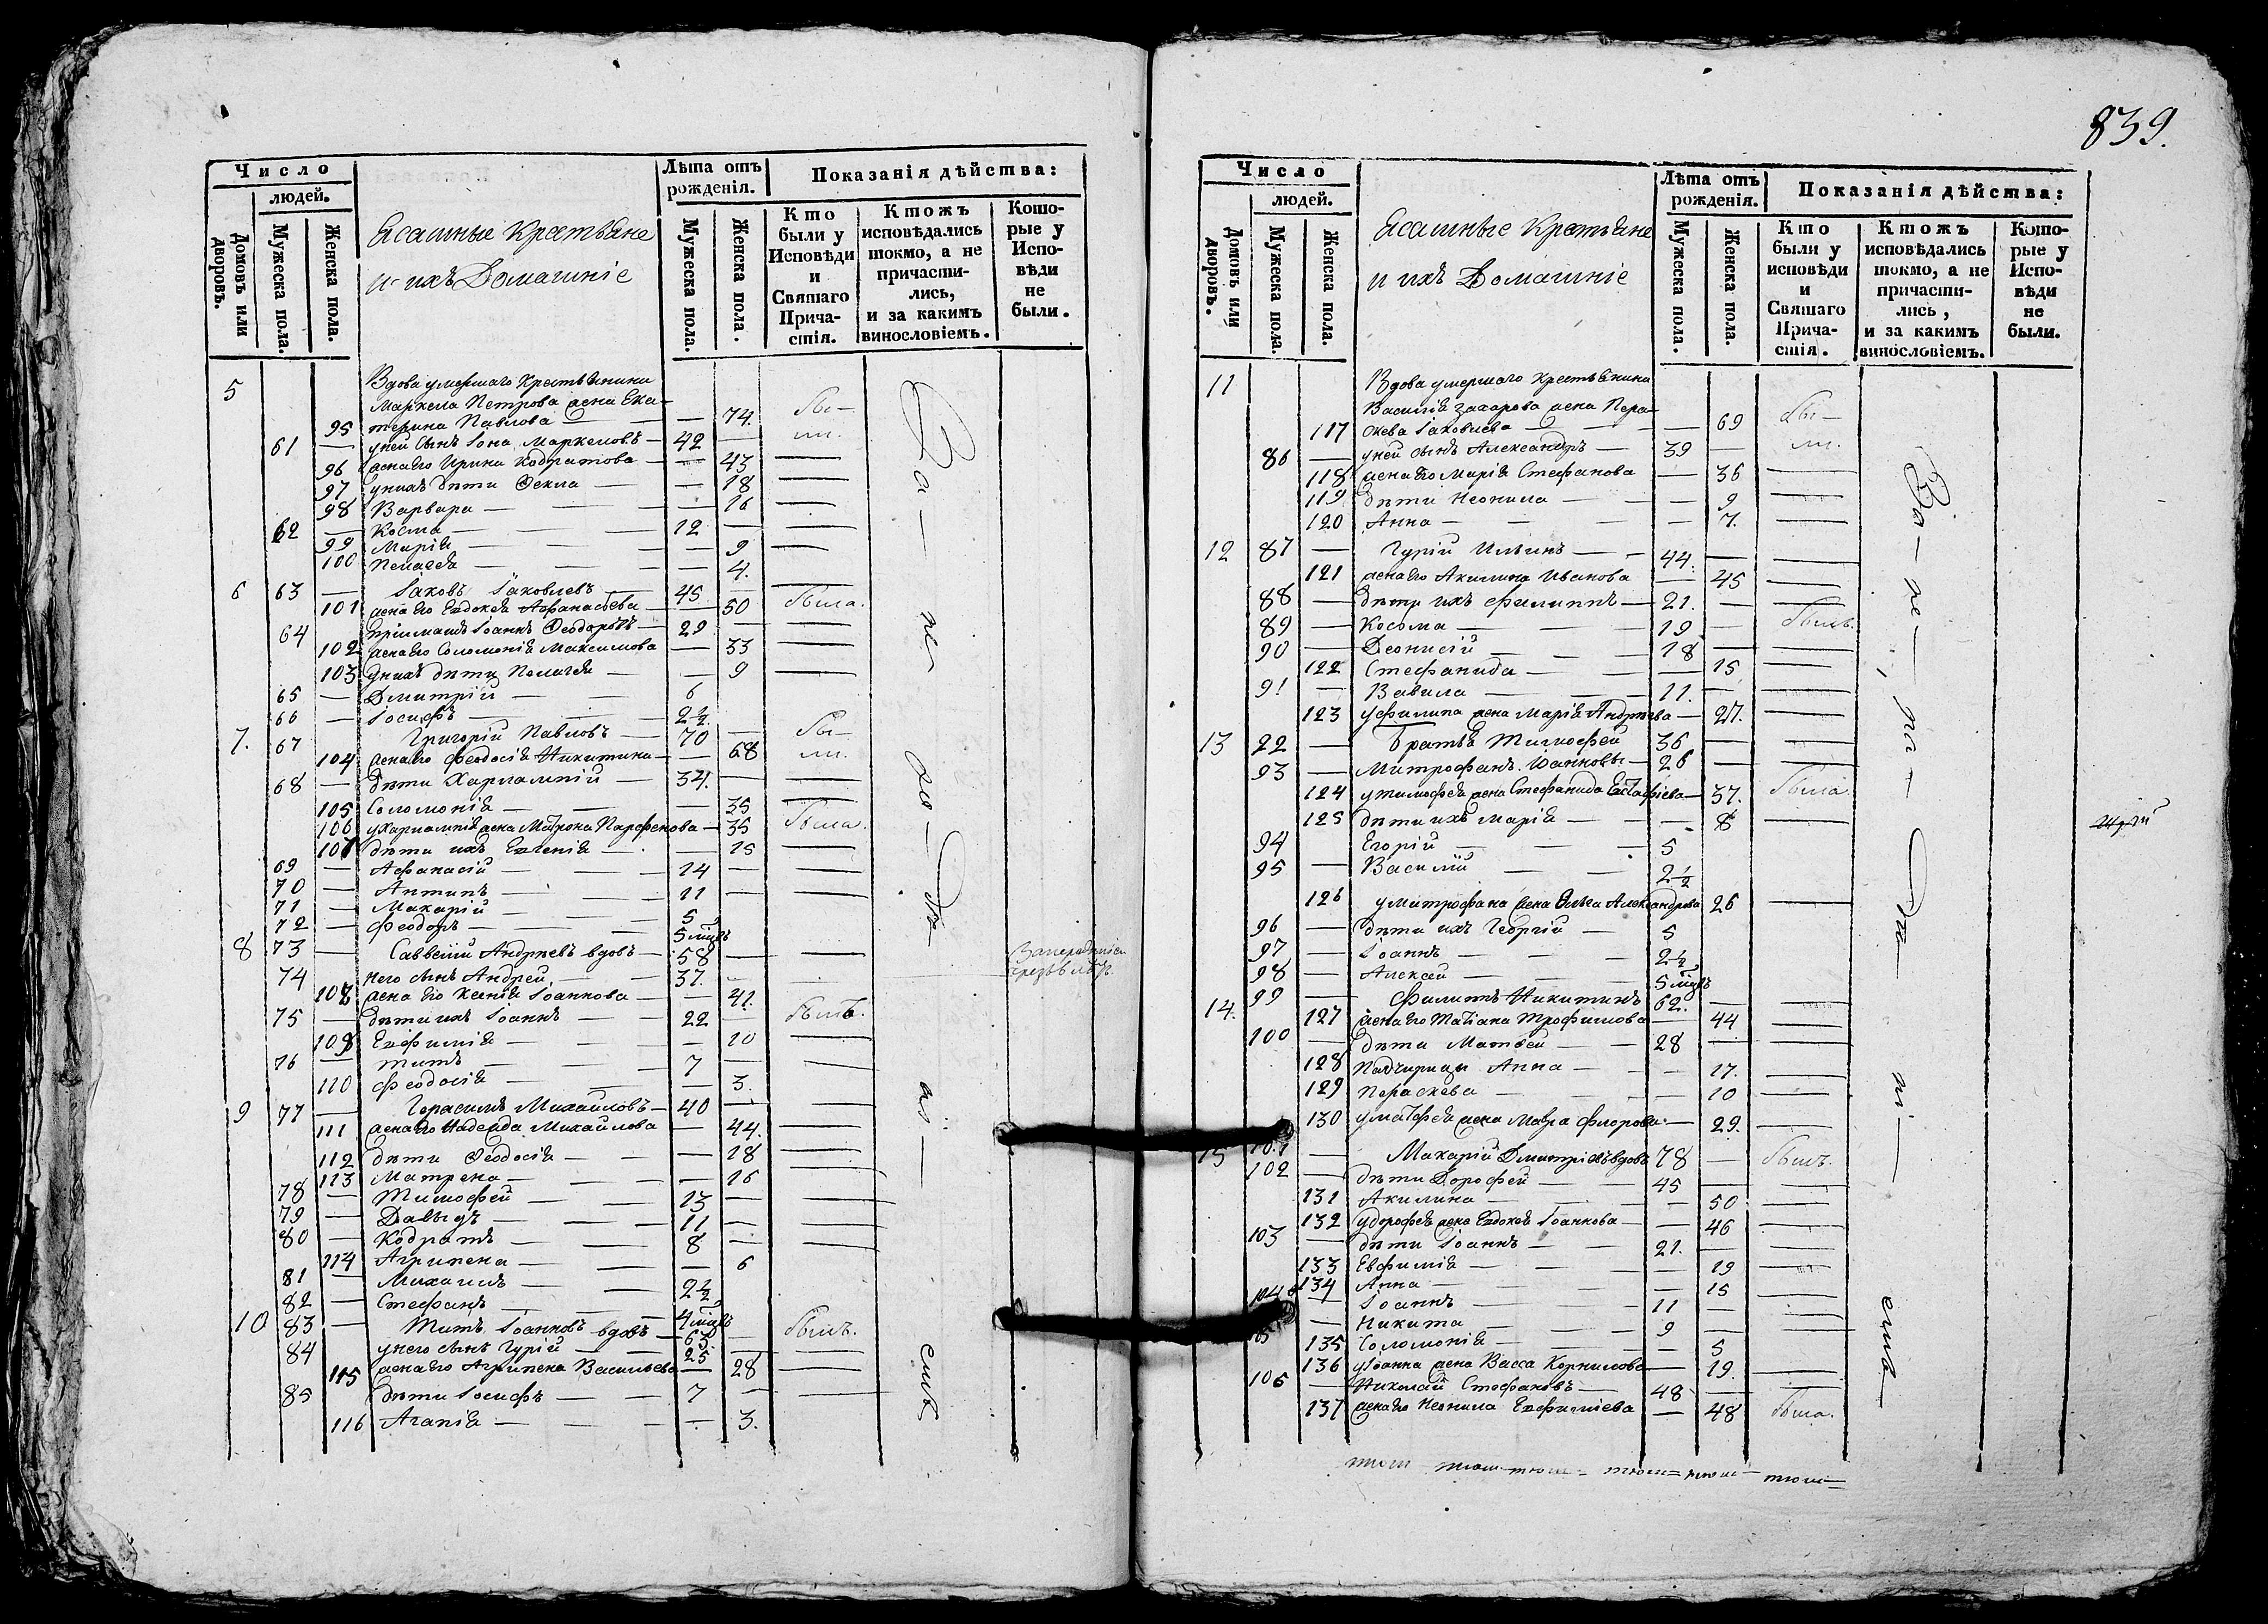 Число
людей.
Домовъ или дворовъ.
Мужеска пола.
Женска пола.
Ясашные Крестьяне
и ихъ Домашніе
Лѣта отъ рожденія.
Мужеска пола.
Женска пола.
Показанія дѣйства:
Кто были у Исповѣди и Святаго Причастія.
Ктожъ исповѣдались токмо, а не причастились, и за какимъ винословіемъ.
Которые у Исповѣди не были.
5 Вдова умершаго Крестьянина
Маркела Петрова жена Ека-
95 терина Павлова — — 74. бы-
61 — уней сынъ Іона Маркеловъ — 42 — ли.
96 жена его Ирина Кодратова — — 43 —
97 унихъ дѣти Ѳекла — — 18 —
98 Варвара — — 16 —
62 — Косма — 12 — —
99 Марія — — 9 —
100 Пелагея — — 4.
6 63 — Іаковъ Іаковлевъ — 45 — —
101 жена его Евдокея Афанасьева — — 50 была.
64 Пріимашъ Іоаннъ Ѳеодоровъ — 29 — —
102 жена его Соломонія Максимова — 33 —
103 унихъ дѣти Пелагея — — 9 —
65 — Дмитрій — 6
66 — Іосифъ — 2½
7. 67 Григорій Павловъ — 70 — бы-
104 жена его Феодосія Никитина — — 68 ли.
68 — дѣти Харлампій — 34. — —
105 Соломонія — — 35 —
106 ухарлампія жена Матрона Парфенова — 35 была.
107 дѣти ихъ Евгенія — — 15 —
69 — Афанасій — 14 — —
70 — Антипъ — 11 — —
71 — Макарій —
72 — Феодоръ — 5
5 мцъ
8 73 — Савветій Андреевъ вдовъ — 58 — —
74 Него сынъ Андрей — 37. —
108 жена его Ксенія Іоаннова — — 41.
75 — дѣти ихъ Іоаннъ — 22 — былъ.
109 Евфимія — — 10 —
76 — Титъ — 7 —
110 Феодосія — — 3.
9 77 — Герасимъ Михаиловъ — 40 — —
111 жена его Надежда Михаилова — 44. —
112 дѣти Ѳеодосія — — 18 —
113 Матрена — — 16 —
78 — Тимофей — 13 — —
79 — Давыдъ — 11 — —
80 — Кодратъ — 8 — —
114 Агрипена — — 6
81 — Михаилъ — 2½
82 — Стефанъ — 4 мцъ
10 83 — Титъ Іоанновъ вдовъ — 63. — былъ.
84 унего сынъ Гурій — 25 — —
115 жена его Агрипена Васильева — 28 —
85 дѣти Іосифъ — 7 — —
116 Агапія — — 3.
839.
Число
людей.
Домовъ или дворовъ.
Мужеска пола.
Женска пола.
Ясашные Крестьяне
и ихъ Домашніе
Лѣта отъ рожденія.
Мужеска пола.
Женска пола.
Показанія дѣйства:
Кто были у исповѣди и Святаго Причастія.
Ктожъ исповѣдались токмо, а не причастились, и за какимъ винословіемъ.
Которые у Исповѣди не были.
11 Вдова умершаго Крестьянина
Василія Захарова жена Пера-
117 скева Іаковлева — — 69 бы-
86 — уней сынъ Александръ — 39 — ли.
118 жена его Марія Стефанова — 36 —
119 дѣти Неонила — — 9 —
120 Анна — — 7. —
12 87 — Гурій Ильинъ — 44. — —
121 жена его Акилина Иванова — 45 —
88 — дѣти ихъ Филиппъ — 21. — —
89 — Косма — 19 — былъ.
90 — Деонисій — 18 — —
122 Стефанида — — 15 —
91 — Вавила — 11. — —
123 уфилипа жена Марія Андреева — 27. —
13 92 — Братья Тимофей 36 — —
93 — Митрофанъ Іоанновы — 26 — —
124 утимофея жена Стефанида Евстафіева — 37. была
125 дѣти ихъ Марія — — 8 —
94 Егорій — 5
95 — Василій — 2½
126 умитрофана жена Ольга Александрова 26 —
96 — дѣти ихъ Георгій — 5
97 — Іоаннъ — 2½
98 — Алексей — 5 мцъ
14. 99 — Филиппъ Никитинъ 62. — —
127 жена его Татіана Трофимова — 44 —
100 — дѣти Матвей — 28 — —
128 Падчирицы Анна — — 17. —
129 Параскева — — 10 —
130 уматфея жена Мавра Флорова — 29. —
15 101 — Макарій Дмитріевъ вдовъ 78 — былъ.
102 — дѣти Дорофей — 45 — —
131 Акилина — — 50 —
132 удорофея жена Евдокея Іоаннова — — 46 —
103 — дѣти Іоаннъ — 21. — —
133 Евфимія — — 19 —
134 Анна — — 15 —
104 — Іоаннъ — 11 — —
105 — Никита — 9 — —
135 Соломонія — — 5
136 уІоанна жена Васса Корнилова — 19. —
106 — Николай Стефановъ — 48 — —
137 жена его Неонила Евфиміева — 48 была.